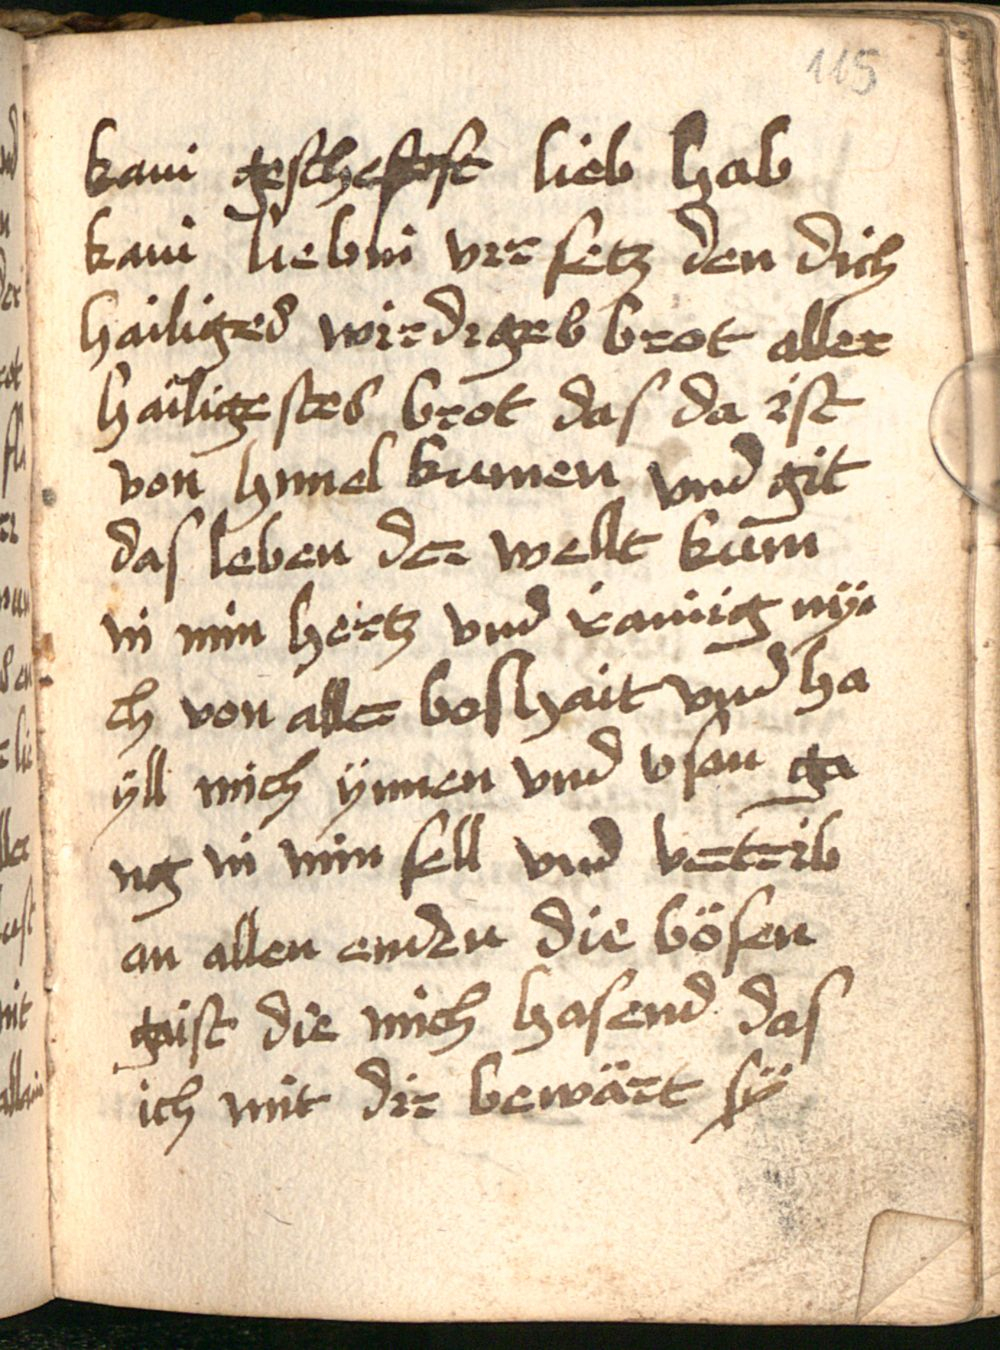 115
kain geschepft lieb hab
kain liebin vrr setz den dich
hailiges wirdiges brot aller
hailigestes brot das da ist
von himel kumen vnd git
das leben der wellt kum
in min hertz vnd rainig my
ch von aller boshait vnd ha
yll mich ynnen vnd vsen ga
ng in min sell vnd vertrib
an allen enden die bösen
gaist die mich hasend das
ich mit dir bewärt sÿ